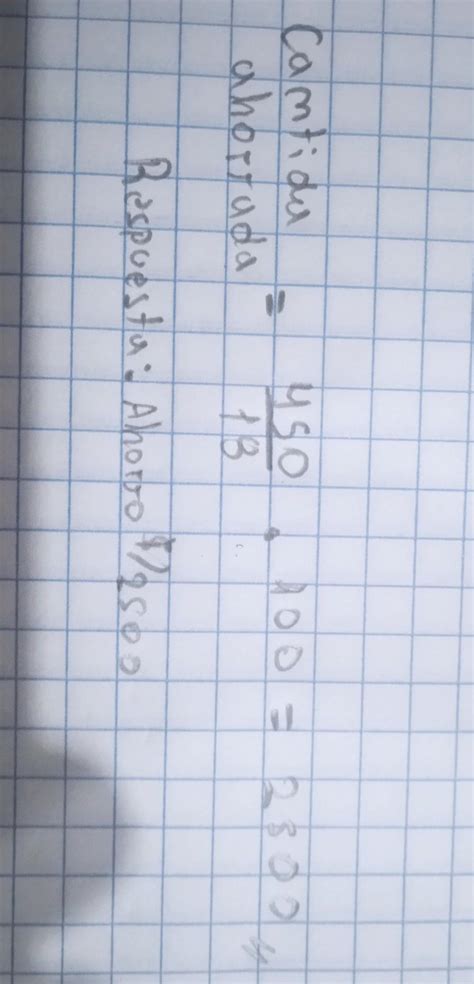 Cantida
ahorrada = 450/18 . 100 = 2500 //
Respuesta: Ahorro $/2500